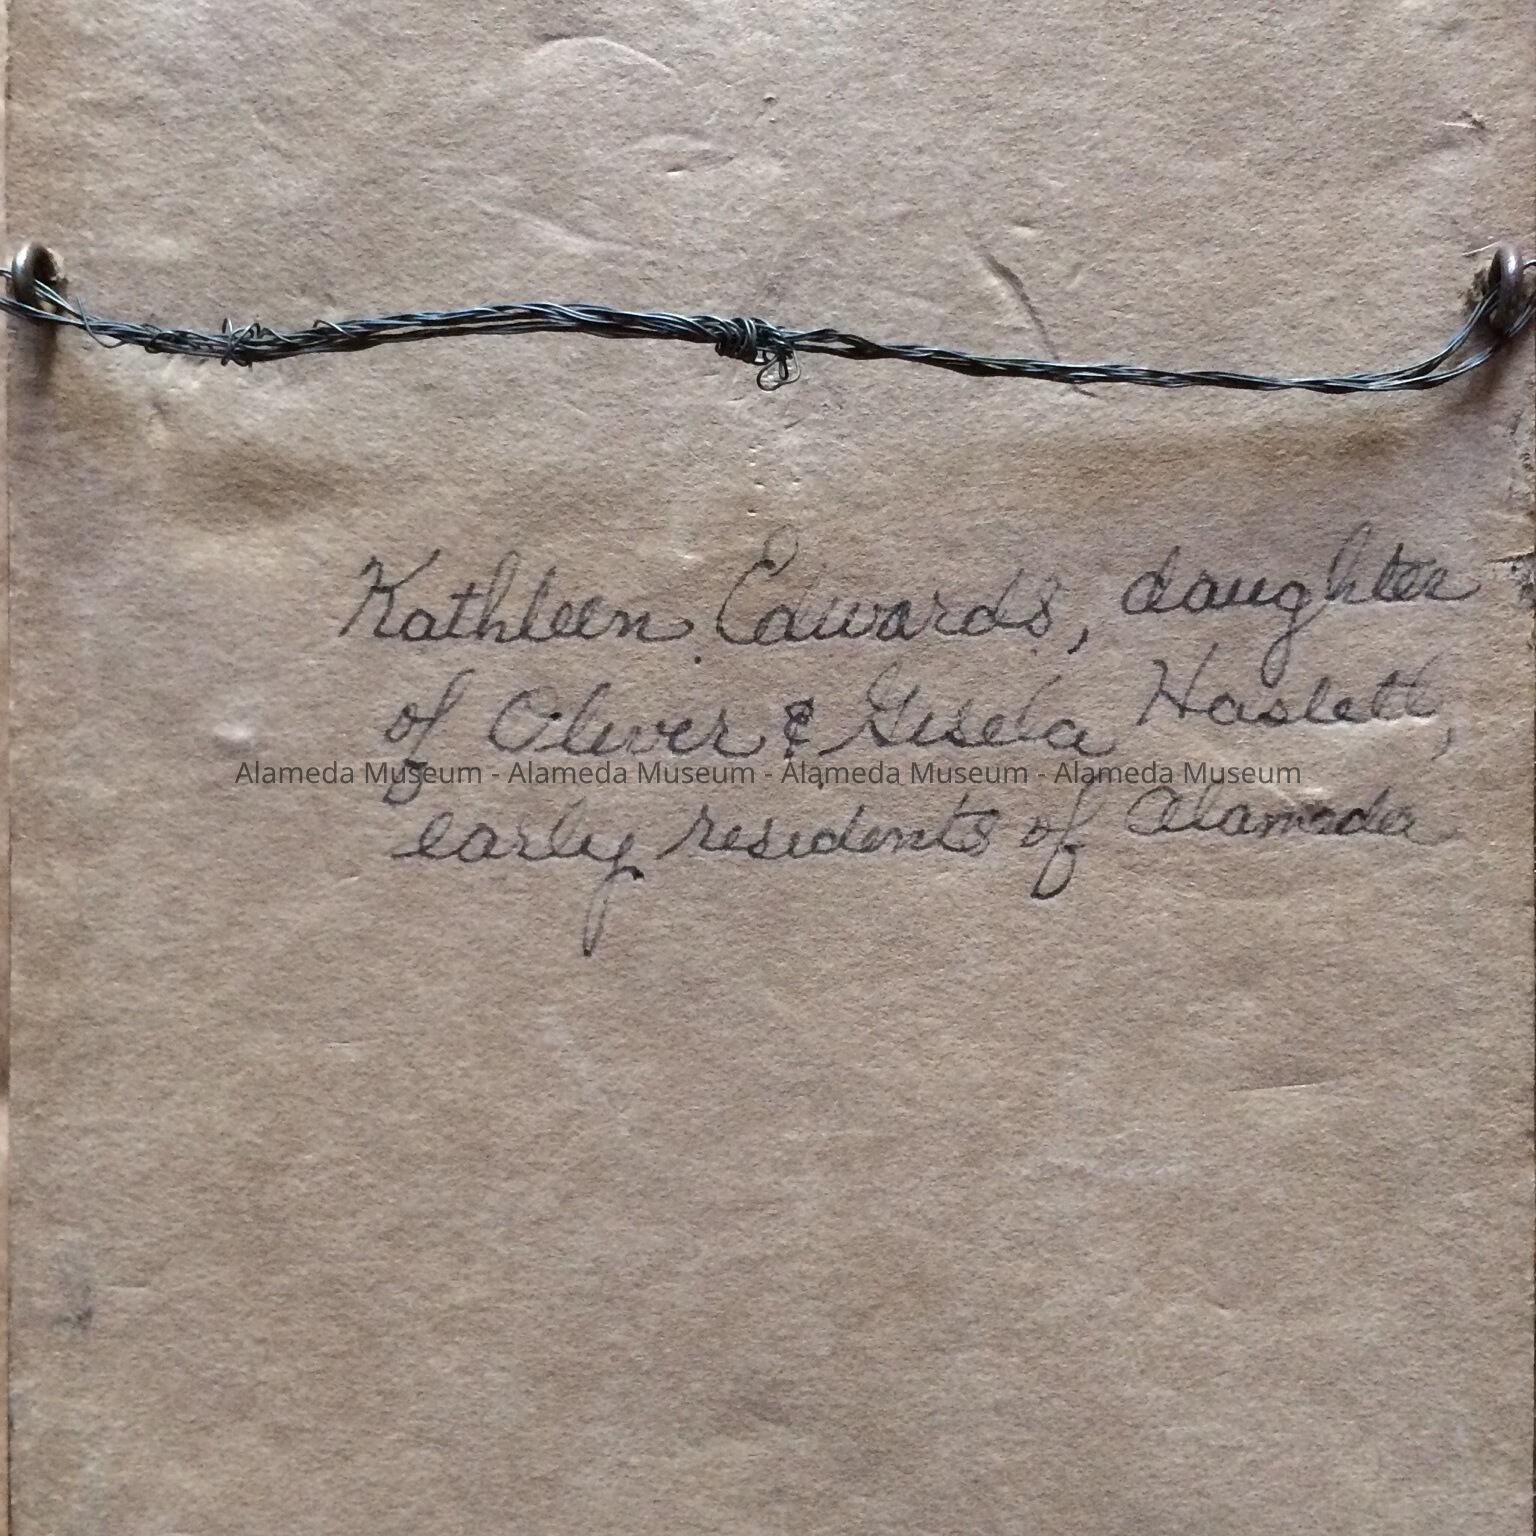 Kathleen Edwards, daughter
of Oliver & Gisela Haslett,
Alameda Museum - Alameda Museum - Alameda Museum - Alameda Museum
early residents of Alameda